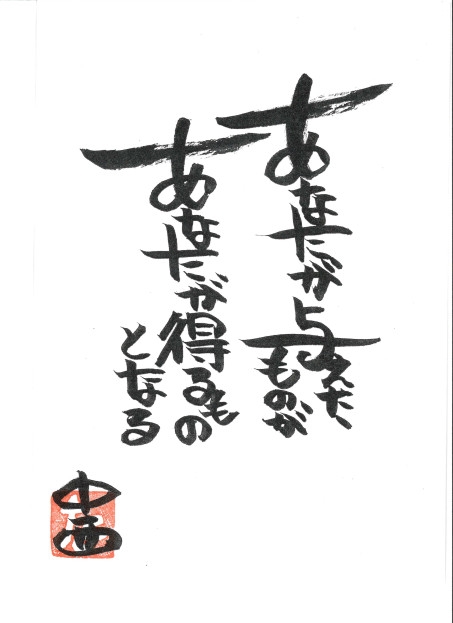 あなたが与えた
ものが
あなたが得るもの
となる